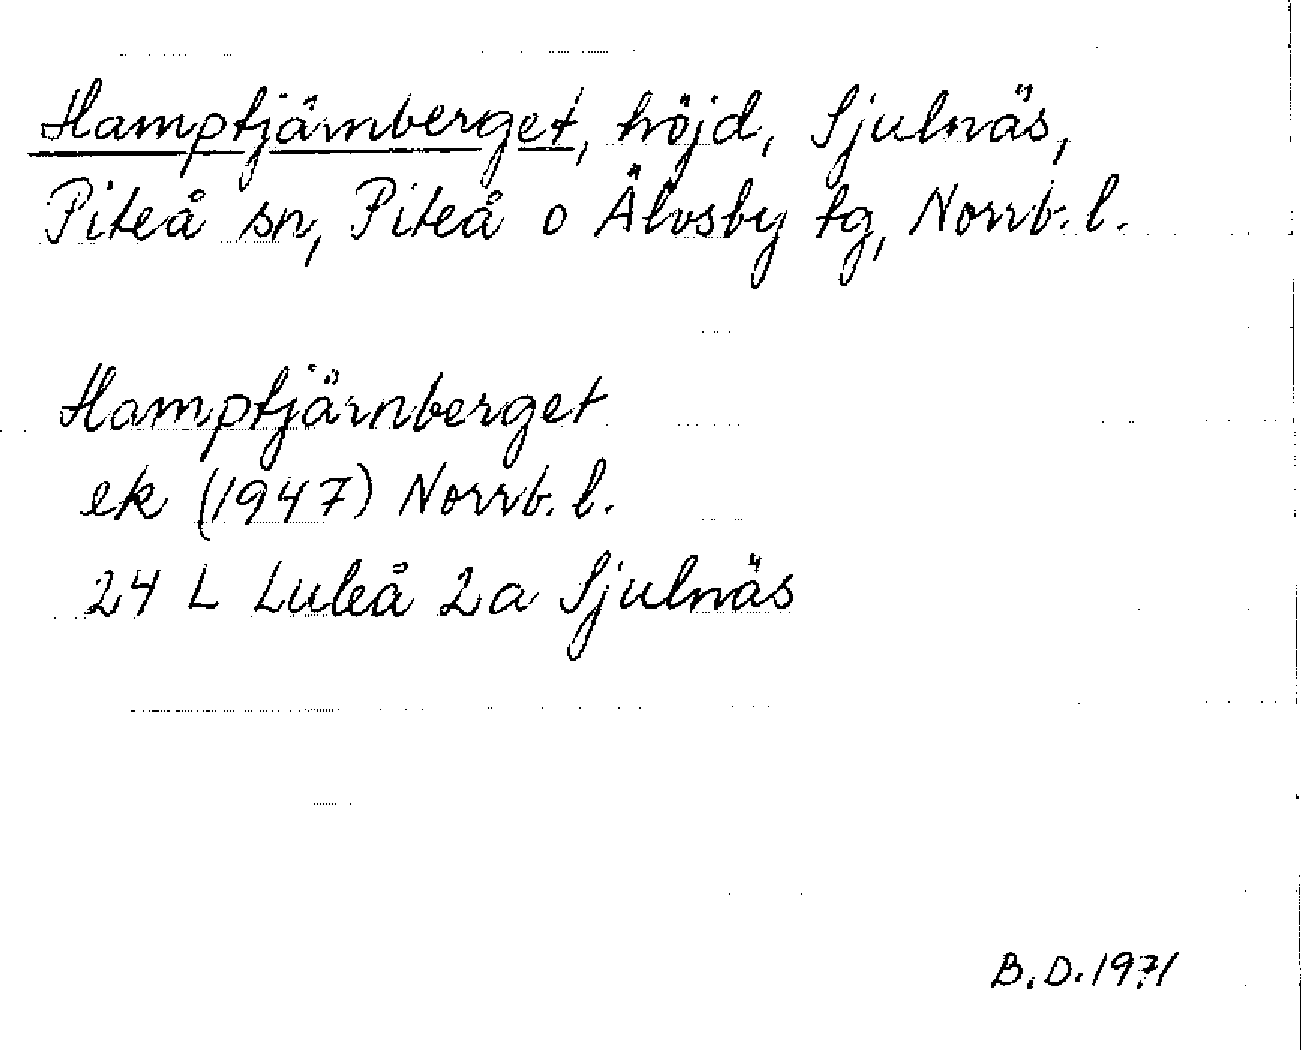 Hamptjärnberget, höjd, Sjulnäs,
Piteå sn, Piteå o Älvsby tg, Norrb. l.
Hamptjärnberget
ek (1947) Norrb. l.
24 L Luleå 2a Sjulnäs
B.D. 1971